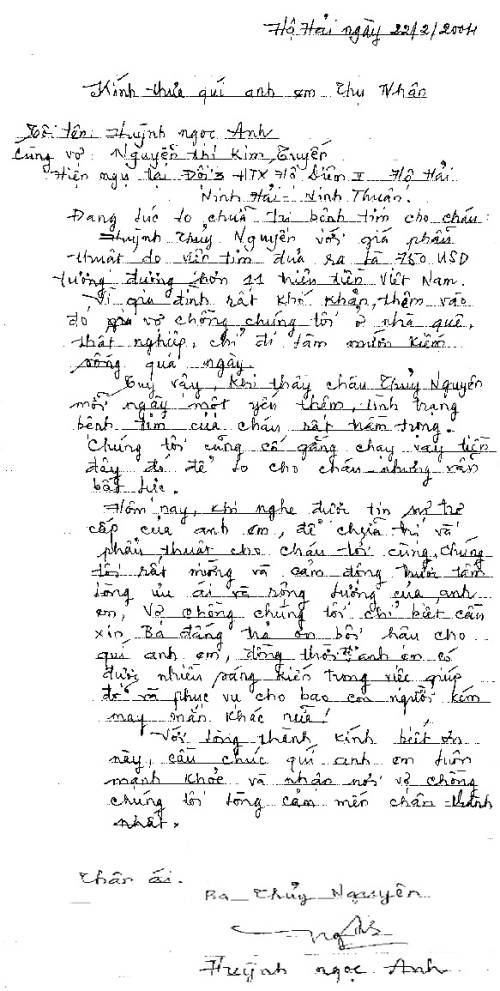 Hộ Hải ngày 22/2/2004
Kính thưa quí anh em Thụ Nhân
Tôi tên: Huỳnh ngọc Anh
Cùng vợ: Nguyễn thị Kim Tuyến
Hiện ngụ tại Đội 3 HTX Hộ Diêm II Hộ Hải
Ninh Hải - Ninh Thuận.
Đang lúc lo chuẩn trị bệnh tim cho cháu:
Huỳnh Thuỷ Nguyên với giá phẩu
thuật do viện tim đưa ra là 750 USD
tương đương hơn 11 triệu tiền Việt Nam.
Vì gia đình rất khó khăn, thêm vào
đó vợ chồng chúng tôi ở nhà quê,
thất nghiệp, chỉ đi làm mướn kiếm
sống quá ngày
Tuy vậy, khi thấy cháu Thuỷ Nguyên
mỗi ngày một yếu thêm, tình trạng
bệnh tim của cháu rất trầm trọng.
Chúng tôi cũng cố gắng chạy vay tiền
đây đó để lo cho cháu nhưng vẫn
bất lực.
Hôm nay, khi nghe được tin sự trợ
cấp của anh em, để chữa trị và
phẩu thuật cho cháu tới cùng, chúng
tôi rất mừng và cảm động trước tấm
lòng ưu ái và rộng lượng của anh
em, Vợ chồng chúng tôi chỉ biết cầu
xin Bà đấng trả ơn bội hậu cho
quí anh em, đồng thời anh em có
được nhiều sáng kiến trong việc giúp
đở và phục vụ cho bao con người kém
may mắn khác nữa!
Với lòng thành kính biết ơn
này, cầu chúc quí anh em luôn
mạnh khoẻ và nhận nơi vợ chồng
chúng tôi lòng cảm mến chân thành
nhất.
Thân ái.
Ba Thủy Nguyên
Huỳnh ngọc Anh